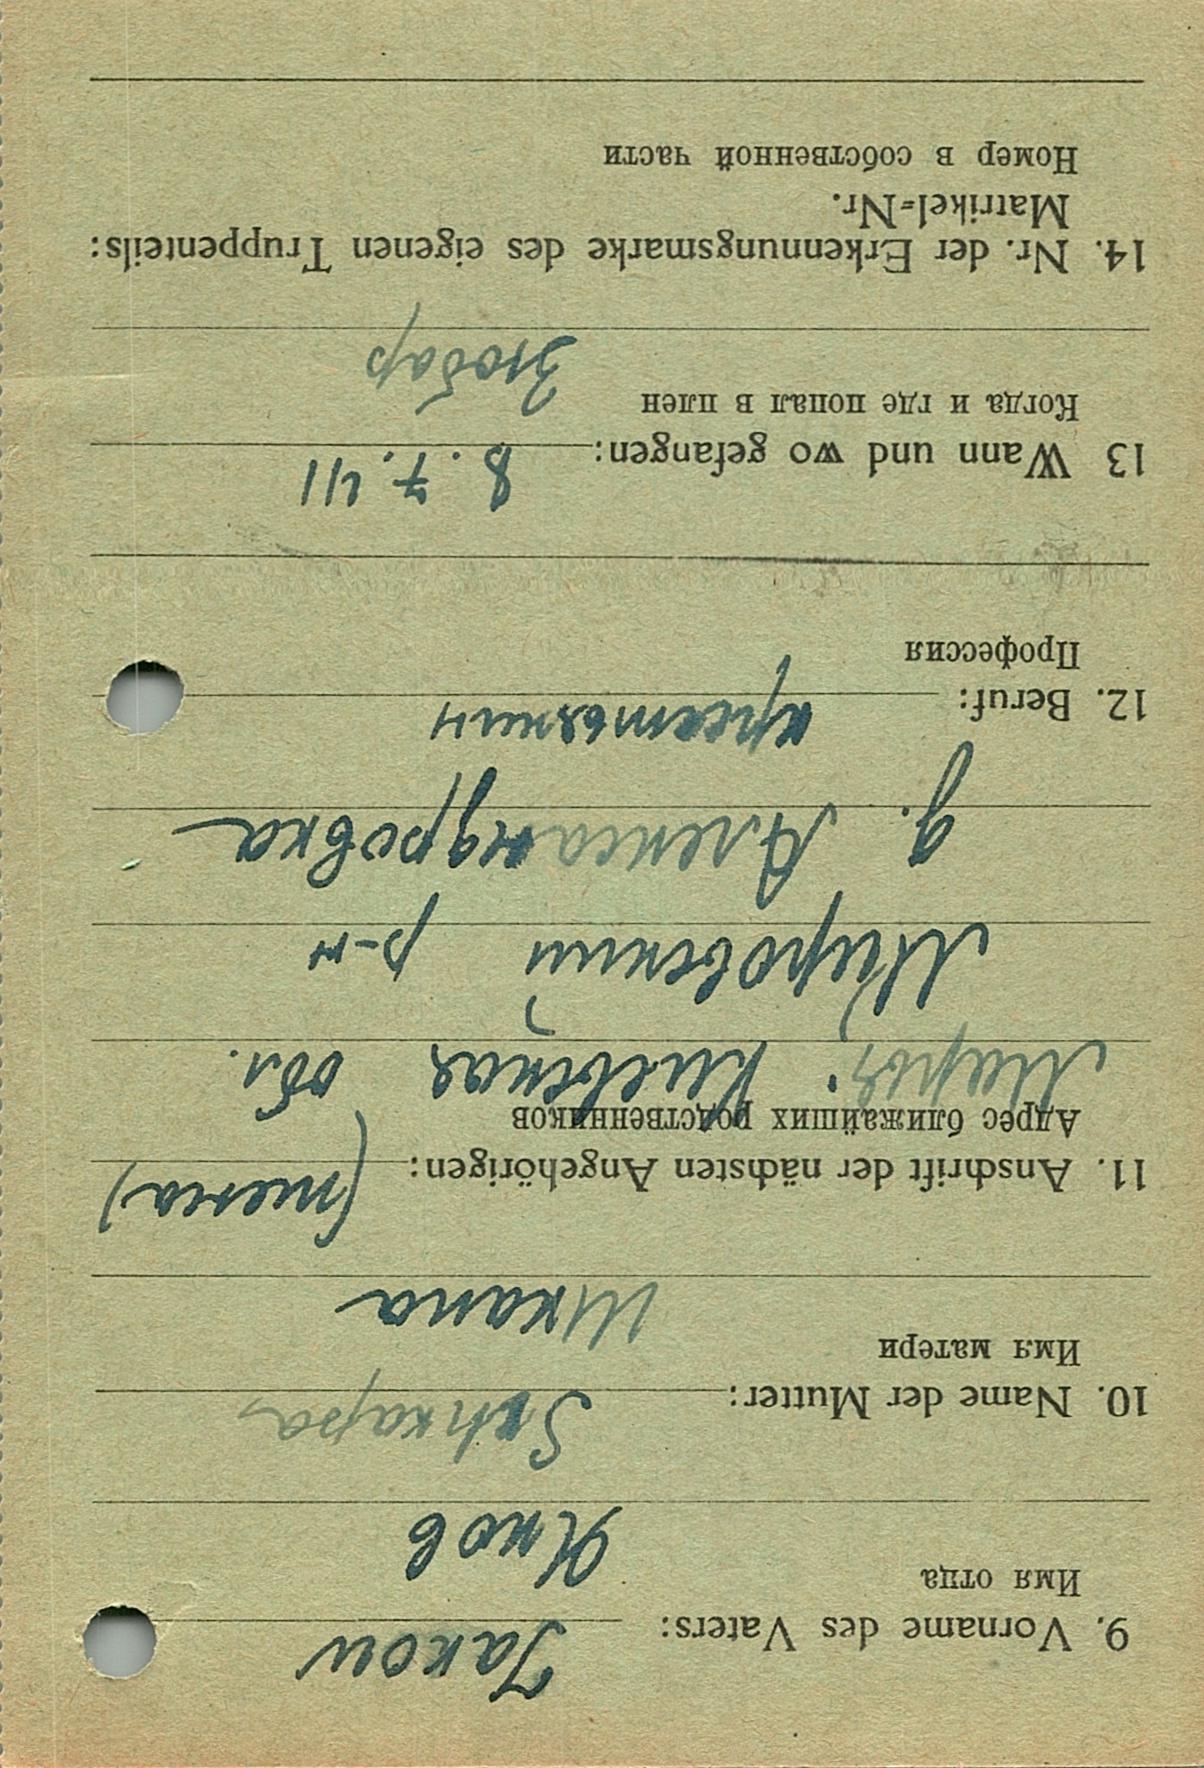 9. Vorname des Vaters: Jakow
Имя отца
Яков
10. Name der Mutter: Schkapa
Имя матери
Шкапа
11. Anschrift der nächsten Angehörigen: (жена)
Адрес ближайших родственников
Марья Киевская обл.
Мировский р-н
д. Александровка
12. Beruf: крестьянин
Профессия
13 Wann und wo gefangen: 8.7.41
Когда и где попал в плен
14. Nr. der Erkennungsmarke des eigenen Truppenteils:
Matrikel=Nr.
Номер в собственной части